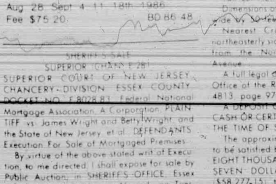 Aug 28 Sept 4 11 18th 1986
Fee $75.20 BD 86 48
SHERIFF'S SALE
SUPERIOR
SUPERIOR COURT OF NEW JERSEY
CHANCERY DIVISION ESSEX COUNTY
DOCKET NO. F 8028 83 Federal National
Mortgage Association, A Corporation PLAIN
TIFF vs James Wright and Betty Wright and
the State of New Jersey, et al., DEFENDANTS
Execution For Sale of Mortgaged Premises
By virtue of the above stated writ of Execu
tion, to me directed, I shall expose for sale by
Public Auction, in SHERIFFS OFFICE, Essex
Dimensions
Nearest Cr
northeasterly si
from the No
Avenue
A full legal
Office of the
4813 page 97
A DEPOSIT
CASH OR CERT
THE TIME OF
The approxi
to be satisfied
EIGHT THOUSA
SEVEN DOLL